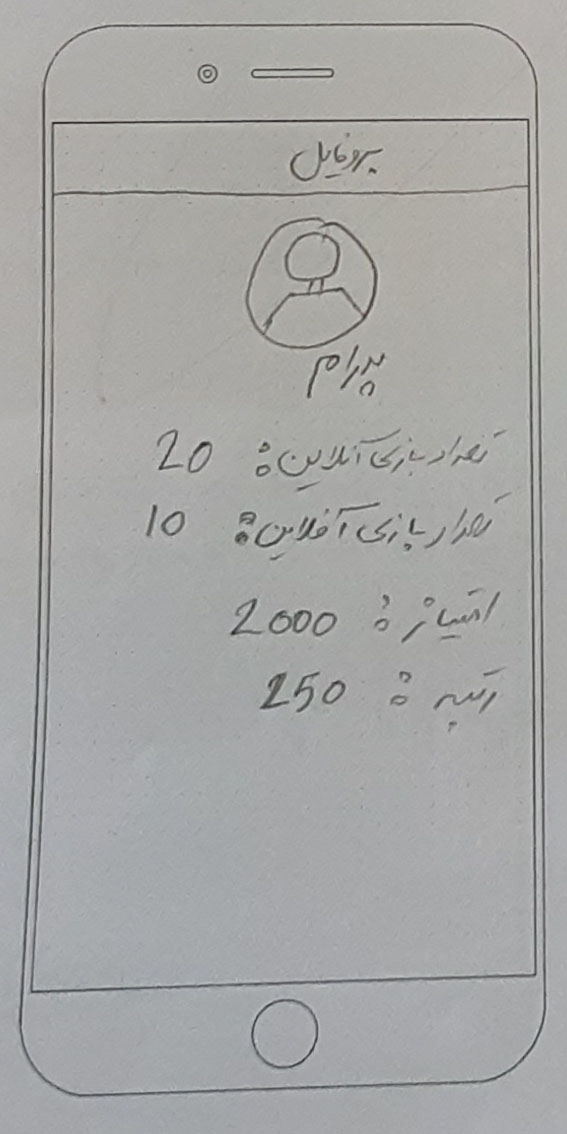 پروفایل
پدرام
تعداد بازی آنلاین: 20
تعداد بازی آفلاین: 10
امتیاز: 2000
رتبه: 250